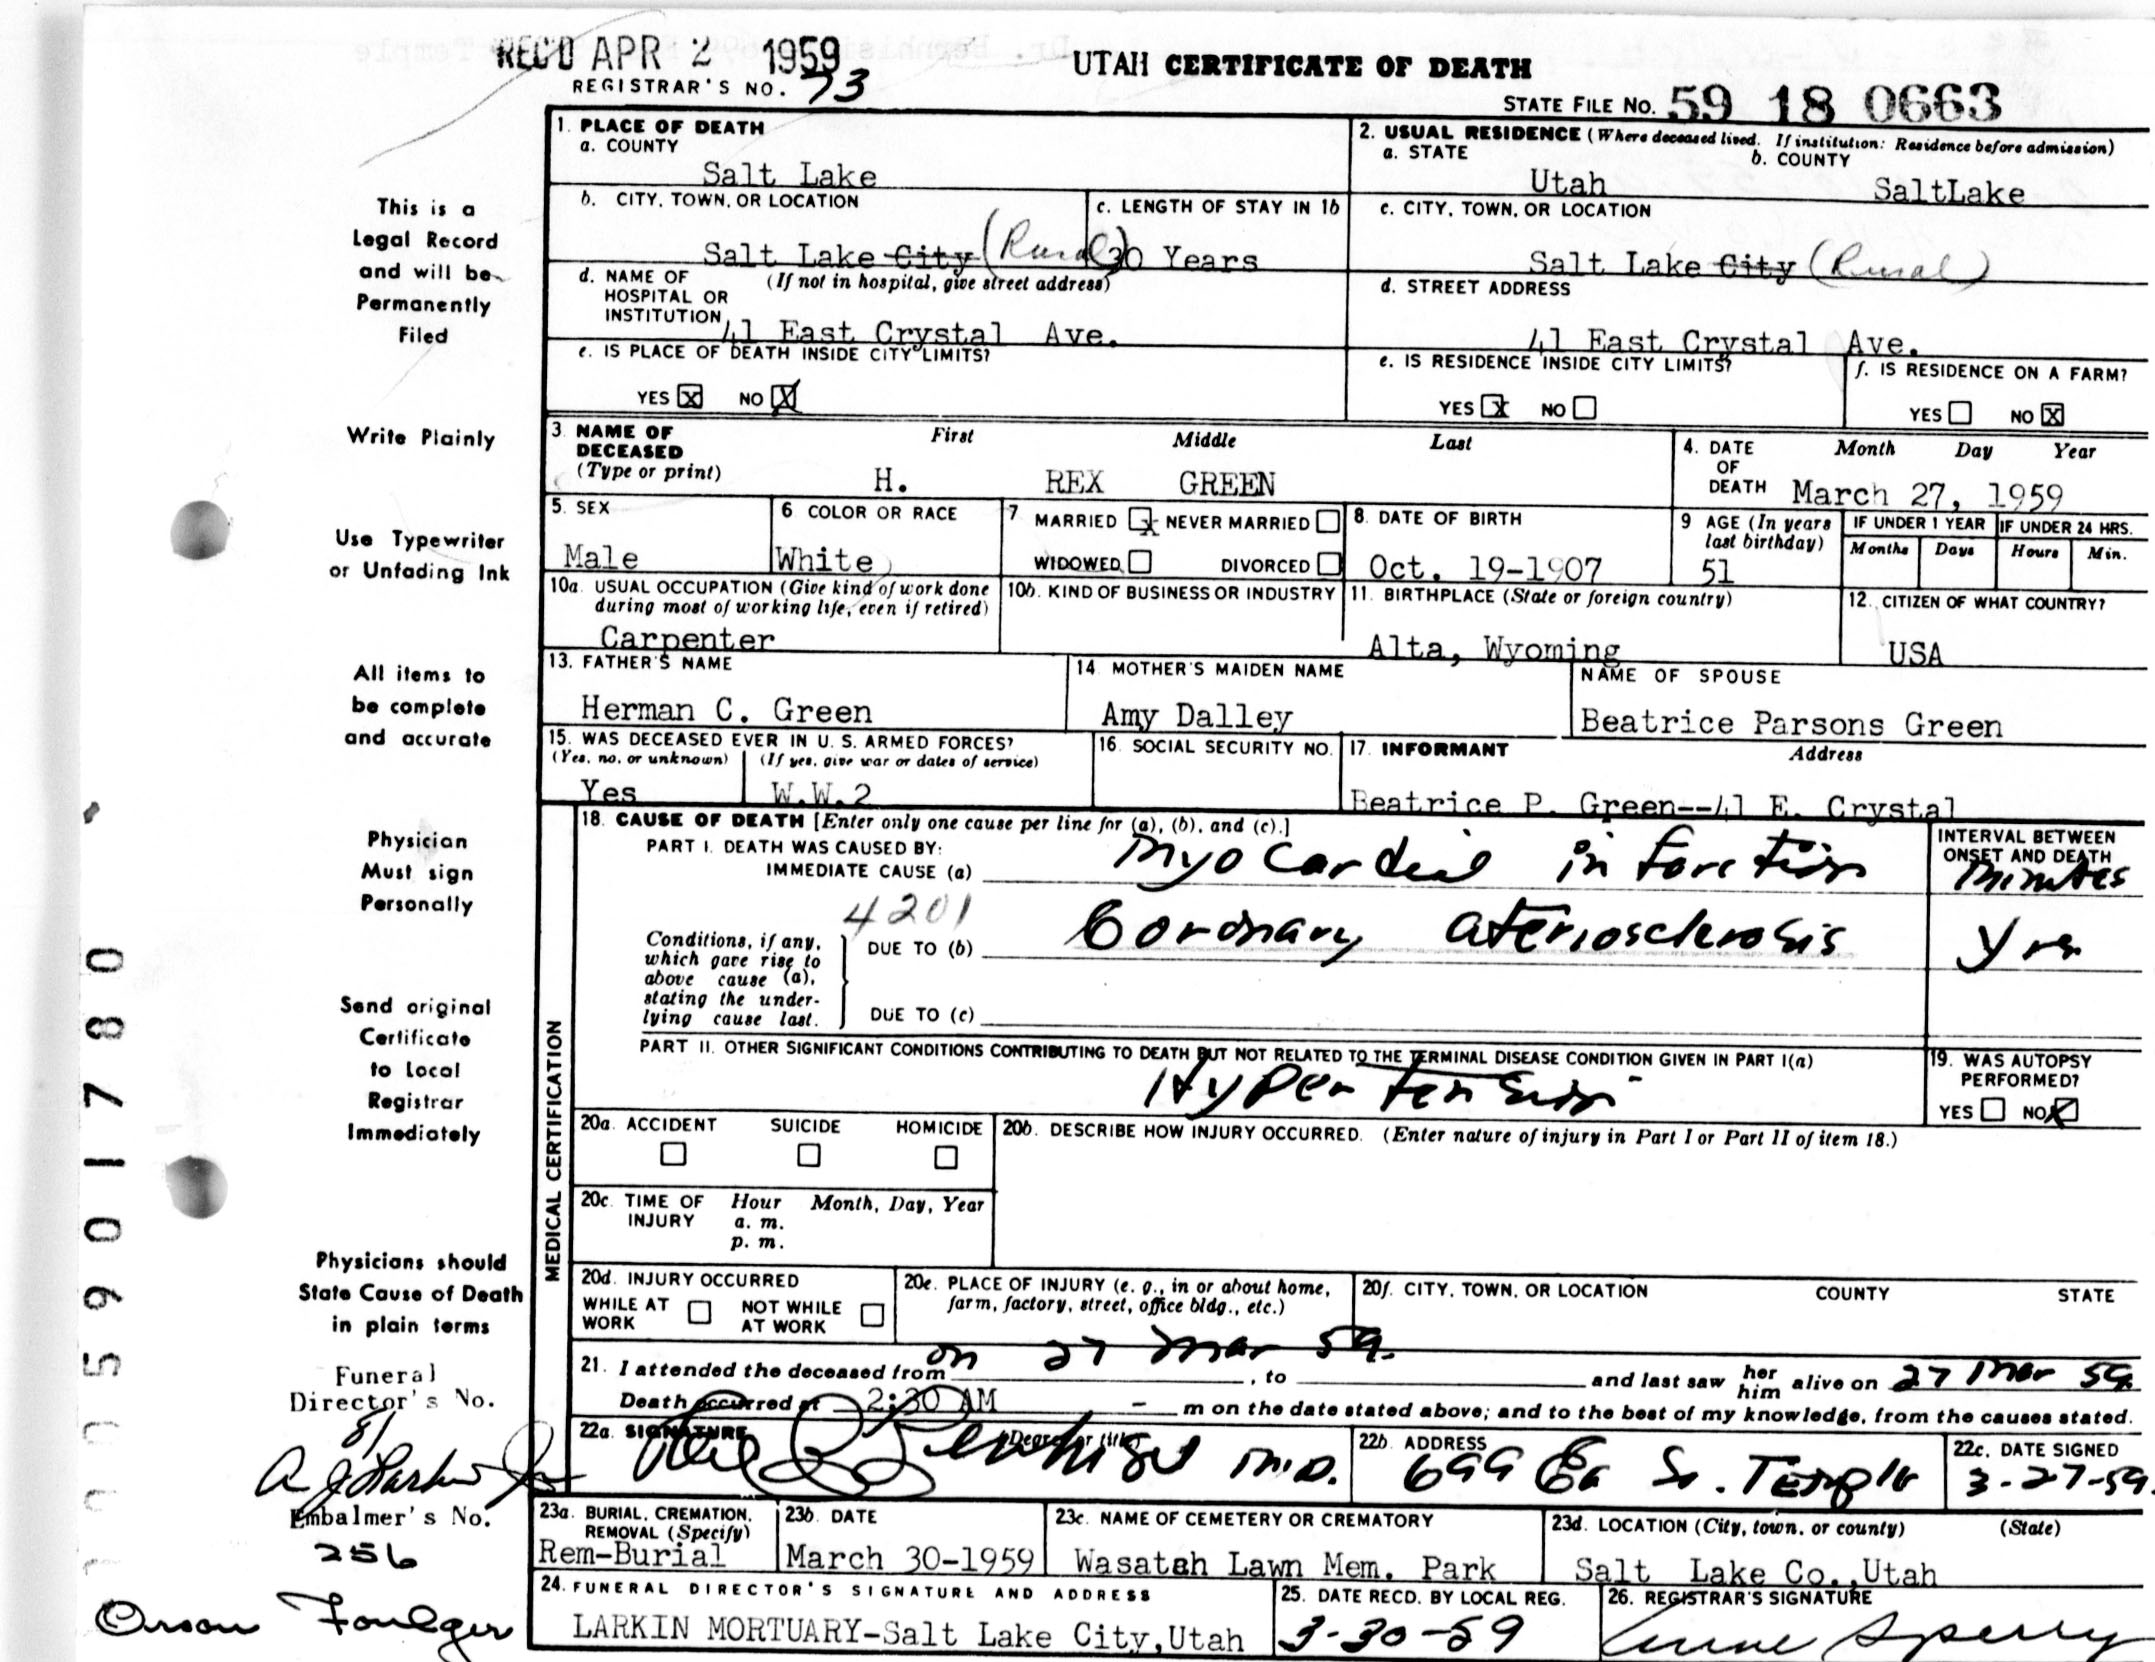 REC'D APR 2 1959
REGISTRAR'S NO. 73
UTAH CERTIFICATE OF DEATH
STATE FILE No. 59 18 0663
1. PLACE OF DEATH
a. COUNTY
Salt Lake
2. USUAL RESIDENCE (Where deceased lived. If institution: Residence before admission)
a. STATE
Utah
b. COUNTY
SaltLake
b. CITY, TOWN, OR LOCATION
Salt Lake City (Rural)
c. LENGTH OF STAY IN 1b
30 Years
c. CITY, TOWN, OR LOCATION
Salt Lake City (Rural)
d. NAME OF HOSPITAL OR INSTITUTION
(If not in hospital, give street address)
41 East Crystal Ave.
d. STREET ADDRESS
41 East Crystal Ave.
e. IS PLACE OF DEATH INSIDE CITY LIMITS?
YES X NO X
e. IS RESIDENCE INSIDE CITY LIMITS?
YES X NO
f. IS RESIDENCE ON A FARM?
YES NO X
3. NAME OF DECEASED
(Type or print)
First Middle Last
H. REX GREEN
4. DATE OF DEATH
Month Day Year
March 27, 1959
5. SEX
Male
6 COLOR OR RACE
White
7 MARRIED X NEVER MARRIED
WIDOWED DIVORCED
8. DATE OF BIRTH
Oct. 19-1907
9 AGE (In years last birthday)
51
IF UNDER 1 YEAR
Months Days
IF UNDER 24 HRS.
Hours Min.
10a. USUAL OCCUPATION (Give kind of work done during most of working life, even if retired)
Carpenter
10b. KIND OF BUSINESS OR INDUSTRY
11. BIRTHPLACE (State or foreign country)
Alta, Wyoming
12. CITIZEN OF WHAT COUNTRY?
USA
13. FATHER'S NAME
Herman C. Green
14 MOTHER'S MAIDEN NAME
Amy Dalley
NAME OF SPOUSE
Beatrice Parsons Green
15. WAS DECEASED EVER IN U. S. ARMED FORCES?
(Yes, no, or unknown) (If yes, give war or dates of service)
Yes W.W.2
16. SOCIAL SECURITY NO.
17. INFORMANT Address
Beatrice P. Green--41 E. Crystal
MEDICAL CERTIFICATION
18. CAUSE OF DEATH [Enter only one cause per line for (a), (b), and (c).]
PART I. DEATH WAS CAUSED BY:
IMMEDIATE CAUSE (a) Myocardial infarction
INTERVAL BETWEEN ONSET AND DEATH
Minutes
4201
Conditions, if any, which gave rise to above cause (a), stating the underlying cause last.
DUE TO (b) Coronary ateriosclerosis
Yrs
DUE TO (c)
PART II. OTHER SIGNIFICANT CONDITIONS CONTRIBUTING TO DEATH BUT NOT RELATED TO THE TERMINAL DISEASE CONDITION GIVEN IN PART I(a)
Hypertension
19. WAS AUTOPSY PERFORMED?
YES NO X
20a. ACCIDENT SUICIDE HOMICIDE
20b. DESCRIBE HOW INJURY OCCURRED. (Enter nature of injury in Part I or Part II of item 18.)
20c. TIME OF INJURY
Hour Month, Day, Year
a. m.
p. m.
20d. INJURY OCCURRED
WHILE AT WORK NOT WHILE AT WORK
20e. PLACE OF INJURY (e. g., in or about home, farm, factory, street, office bldg., etc.)
20f. CITY, TOWN, OR LOCATION COUNTY STATE
21. I attended the deceased from on 27 Mar 59. , to and last saw her him alive on 27 Mar 59.
Death occurred at 2:30 AM - m on the date stated above; and to the best of my knowledge, from the causes stated.
22a. SIGNATURE (Degree or title)
M.D.
22b. ADDRESS
699 Ea So. Temple
22c. DATE SIGNED
3-27-59.
23a. BURIAL, CREMATION, REMOVAL (Specify)
Rem-Burial
23b. DATE
March 30-1959
23c. NAME OF CEMETERY OR CREMATORY
Wasatch Lawn Mem. Park
23d. LOCATION (City, town, or county) (State)
Salt Lake Co., Utah
24. FUNERAL DIRECTOR'S SIGNATURE AND ADDRESS
LARKIN MORTUARY-Salt Lake City, Utah
25. DATE RECD. BY LOCAL REG.
3-30-59
26. REGISTRAR'S SIGNATURE
Sperry
This is a
Legal Record
and will be
Permanently
Filed
Write Plainly
Use Typewriter
or Unfading Ink
All items to
be complete
and accurate
Physician
Must sign
Personally
Send original
Certificate
to Local
Registrar
Immediately
Physicians should
State Cause of Death
in plain terms
Funeral
Director's No.
81
A J Larkin Jr
Embalmer's No.
256
Orson Foulger
005901780